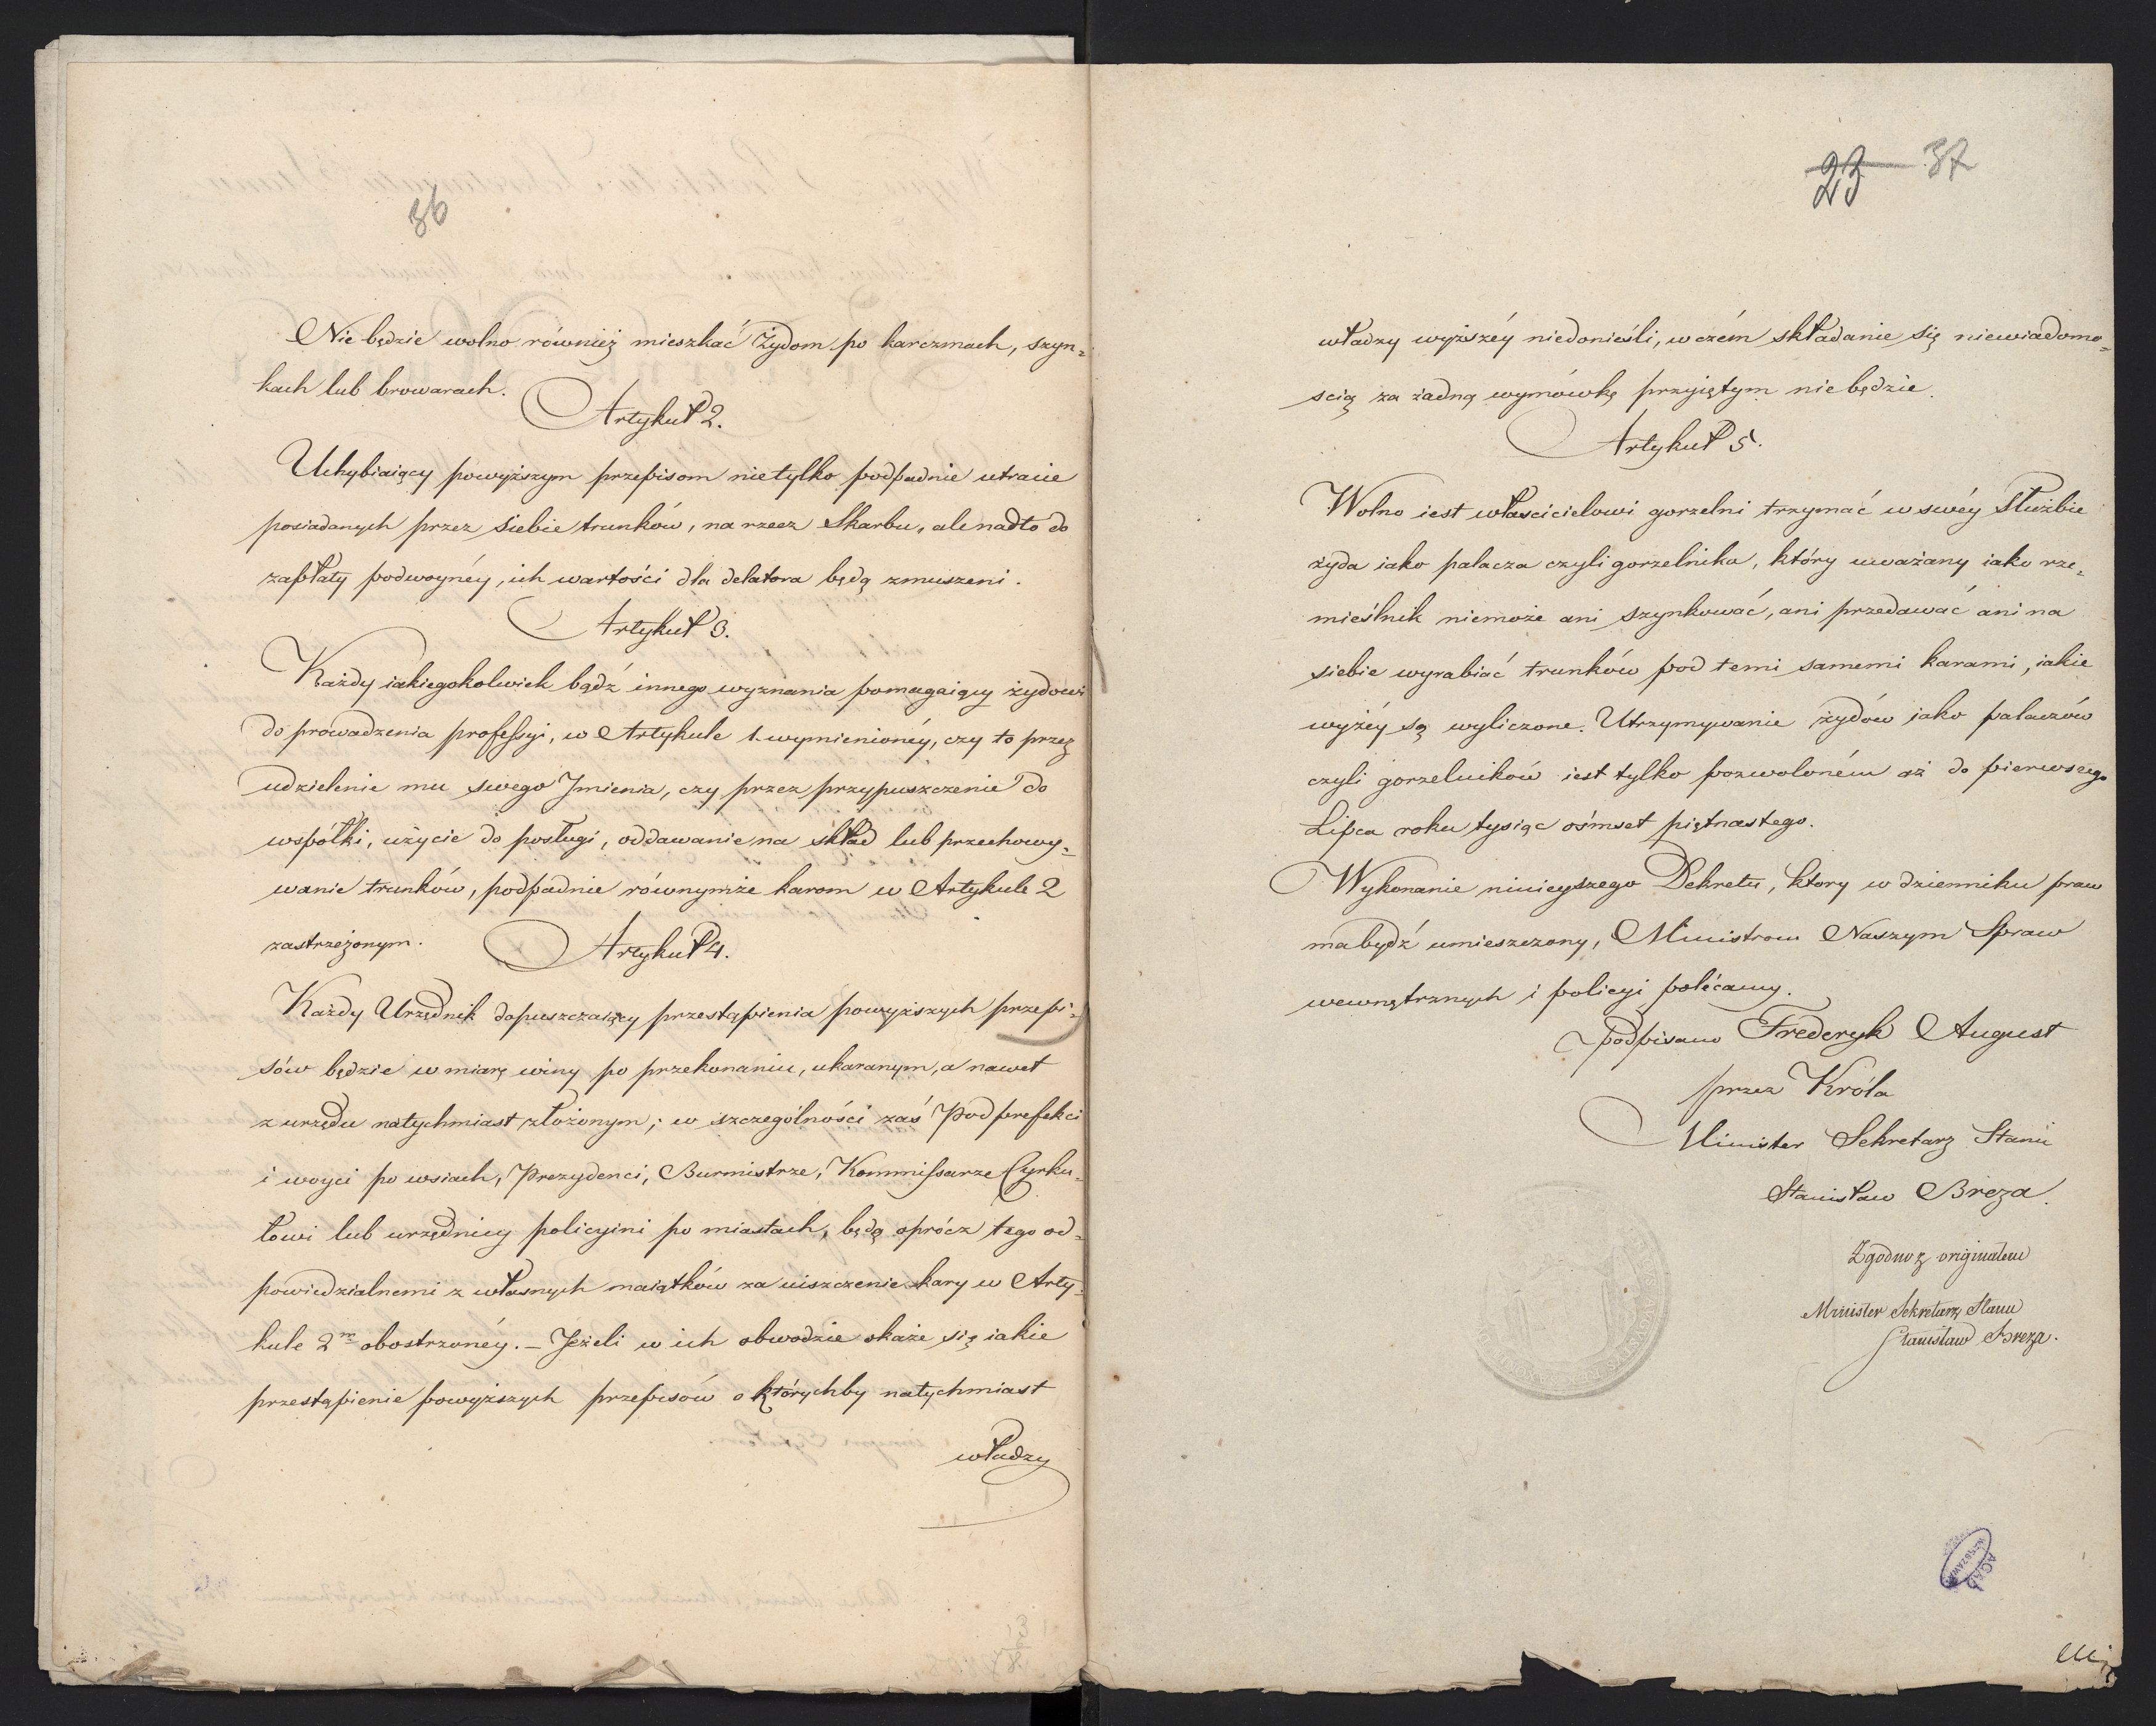 36
Nie będzie wolno również mieszkać Żydom po karczmach, szyn=
kach lub browarach.
Artykuł 2.
Uchybiaiący powyższym przepisom nietylko podpadnie utracie
posiadanych przez siebie trunków, na rzecz Skarbu, ale nadto do
zapłaty podwoynéy, ich wartości dla delatora będą zmuszeni.
Artykuł 3.
Każdy iakiegokolwiek bądź innego wyznania pomagaiący żydowi
do prowadzenia professyi, w Artykule 1. wymienionéy, czy to przez
udzielenie mu swego Jmienia, czy przez przypuszczenie do
współki, użycie do posługi, oddawanie na skład lub przechowy=
wanie trunków, podpadnie równymże karom w Artykule 2
zastrzeżonym.
Artykuł 4.
Każdy Urzędnik dopuszczaiący przestąpienia powyższych przepi=
sów będzie w miarę winy po przekonaniu, ukaranym, a nawet
z urzędu natychmiast złożonym; w szczególności zaś Podprefekci
i woyci po wsiach, Prezydenci, Burmistrze, Kommissarze Cyrku=
łowi lub urzędnicy policyini po miastach, będą oprócz tego od=
powiedzialnemi z własnych maiątków za uiszczenie kary w Arty=
kule 2m obostrzonéy. – Jeżeli w ich obwodzie okaże się iakie
przestąpienie powyższych przepisów o którychby natychmiast
władzy
23 37
władzy wyższéy niedonieśli, w czém składanie się niewiadomo=
scią za żadną wymówkę przyiętym nie będzie.
Artykuł 5.
Wolno iest własćicielowi gorzelni trzymać w swéy służbie
żyda iako palacza czyli gorzelnika, który uważany iako rze=
mieślnik niemoże ani szynkować, ani przedawać ani na
siebie wyrabiać trunków pod temi samemi karami, iakie
wyżéy są wyliczone. Utrzymywanie żydów iako palaczów
czyli gorzelników iest tylko pozwoloném aż do pierwszego
Lipca roku tysiąc ośmset piętnastego.
Wykonanie ninieyszego Dekretu, ktory w dzienniku praw
ma bydź umieszczony, Ministrom Naszym Spraw
wewnętrznych i policyi polécamy.
podpisano Frederyk August
przez Króla
Minister Sekretarz Stanu
Stanisław Breza.
Zgodno z originałem
Minister Sekretarz Stanu
Stanisław Breza.
AGAD